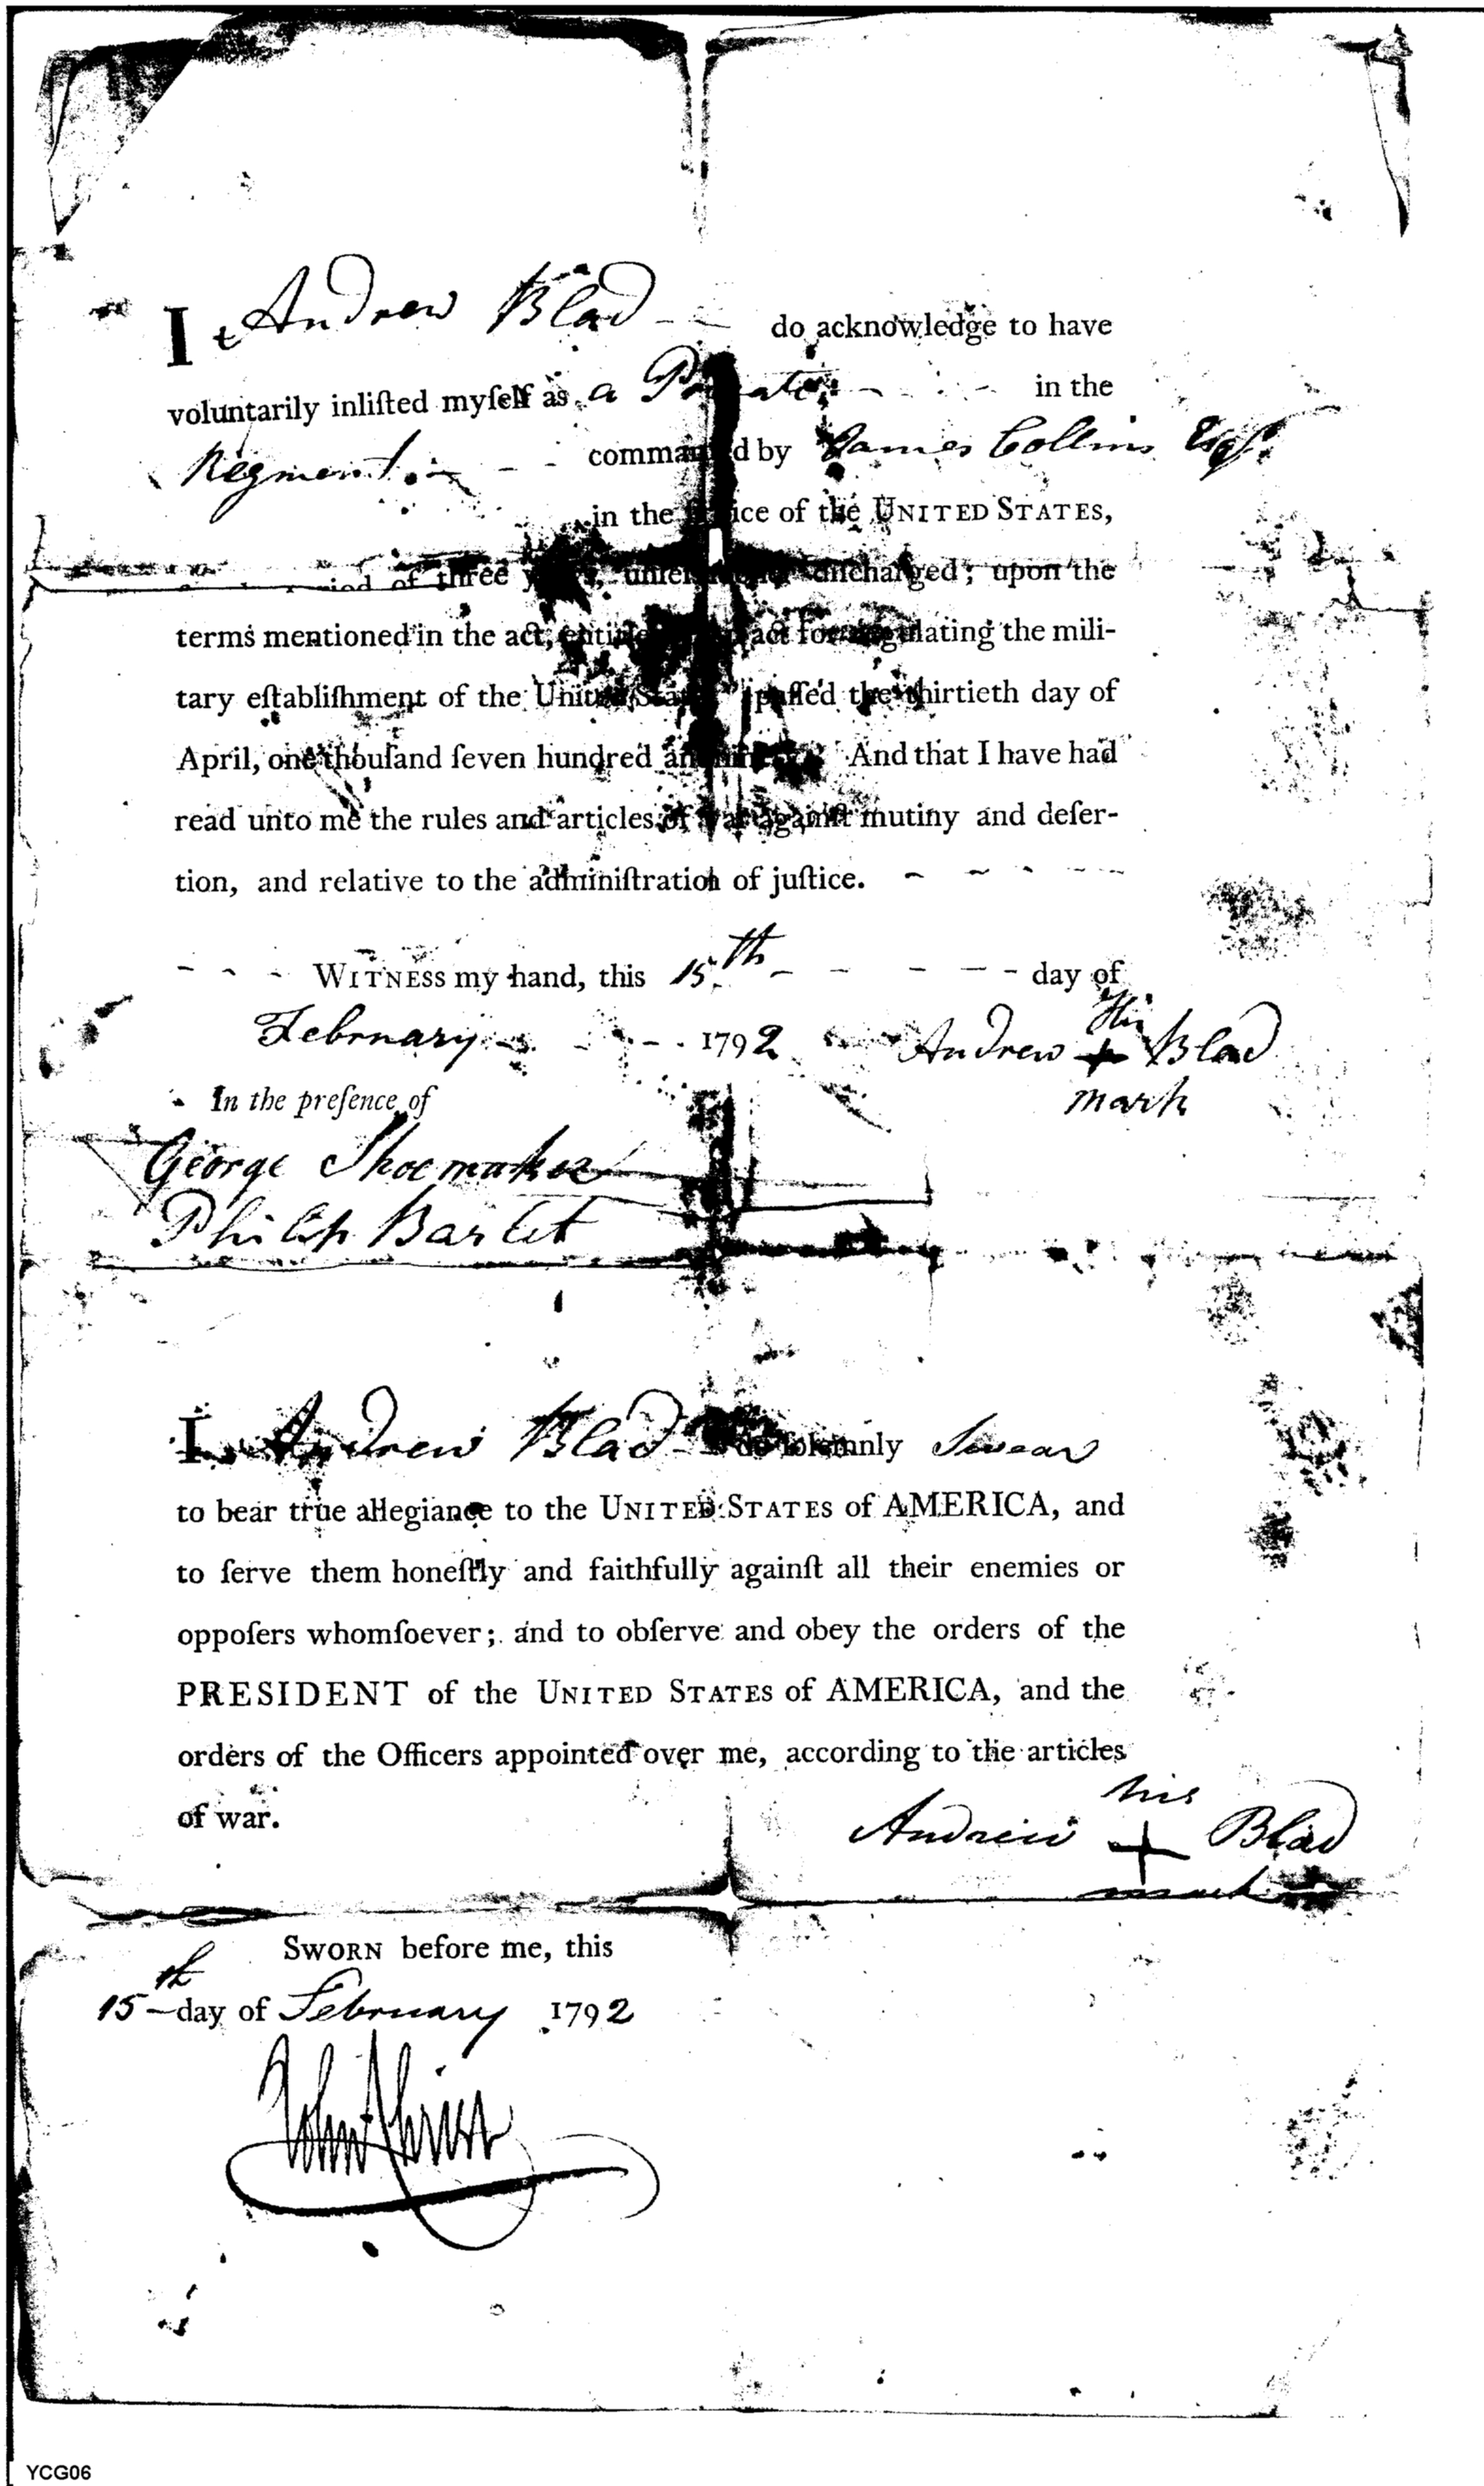 I Andrew Blad do acknowledge to have
voluntarily inliſted myſelf as a Private in the
Regment. commanded by James Collins Esqr.
in the ſervice of the UNITED STATES,
period of three years, unleſs diſcharged; upon the
terms mentioned in the act, entitled act for regulating the mili-
tary eſtabliſhment of the United States" paſſed the thirtieth day of
April, one thouſand ſeven hundred and ninety. And that I have had
read unto me the rules and articles of war againſt mutiny and deſer-
tion, and relative to the adminiſtration of juſtice.
WITNESS my hand, this 15th day of
February 1792
His
Andrew + Blad
mark
In the preſence of
George Shoemaker
Philip Bartet
I Andrew Blad do ſolemnly Swear
to bear true allegiance to the UNITED STATES of AMERICA, and
to ſerve them honeſtly and faithfully againſt all their enemies or
oppoſers whomſoever; and to obſerve and obey the orders of the
PRESIDENT of the UNITED STATES of AMERICA, and the
orders of the Officers appointed over me, according to the articles
of war.
his
Andrew + Blad
mark
SWORN before me, this
15th day of February 1792
John
YCG06